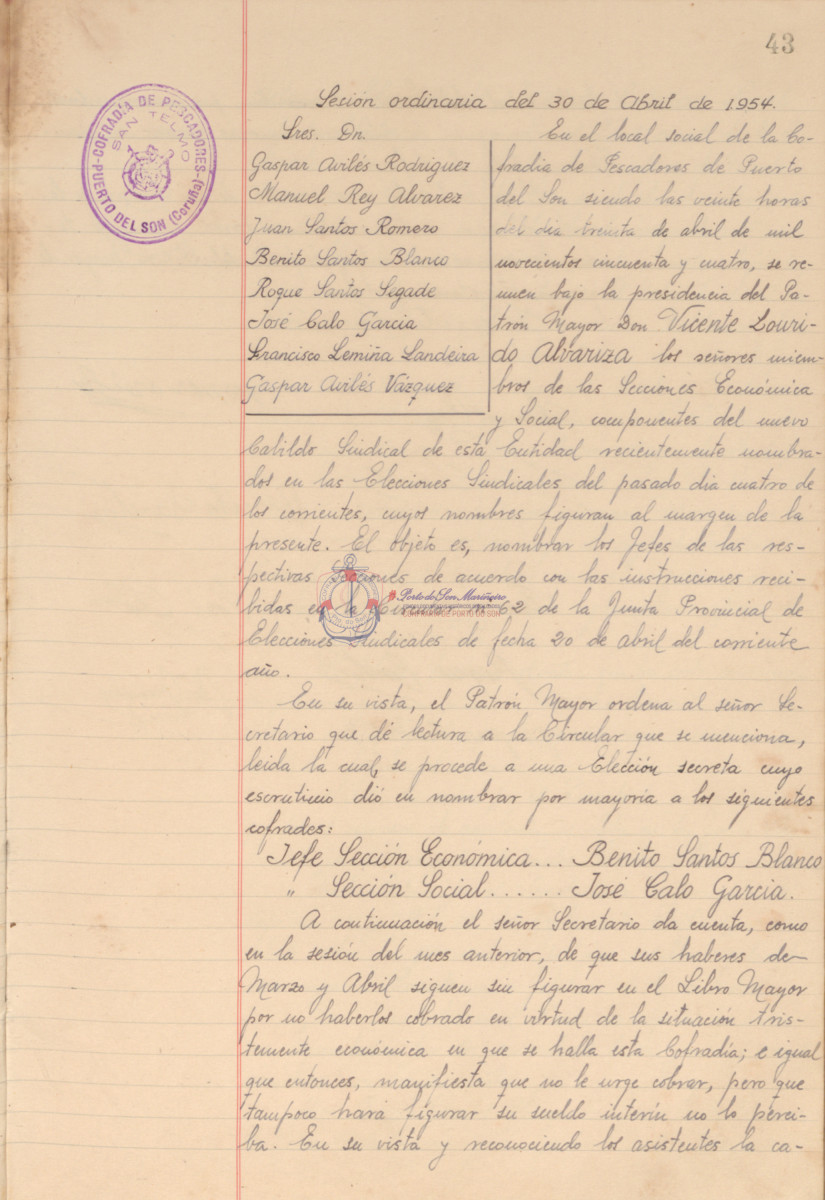 43
COFRADÍA DE PESCADORES
SAN TELMO
PUERTO DEL SON (Coruña)
Sesión ordinaria del 30 de Abril de 1954.
Sres. Dn.
Gaspar Avilés Rodríguez
Manuel Rey Alvarez
Juan Santos Romero
Benito Santos Blanco
Roque Santos Segade
José Calo Garcia
Francisco Lemiña Landeira
Gaspar Avilés Vázquez
En el local social de la Co-
fradia de Pescadores de Puerto
del Son siendo las veinte horas
del dia treinta de abril de mil
novecientos cincuenta y cuatro, se re-
unen bajo la presidencia del Pa-
trón Mayor Don Vicente Louri-
do Alvariza los señores miem-
bros de las Secciones Económica
y Social, componentes del nuevo
Cabildo Sindical de esta Entidad recientemente nombra-
dos en las Elecciones Sindicales del pasado dia cuatro de
los corrientes, cuyos nombres figuran al margen de la
presente. El objeto es, nombrar los Jefes de las res-
pectivas Secciones de acuerdo con las instrucciones reci-
bidas en la Circular nº 62 de la Junta Provincial de
Elecciones Sindicales de fecha 20 de abril del corriente
año.
Porto do Son Mariñeiro
En su vista, el Patrón Mayor ordena al señor Se-
cretario que dé lectura a la Circular que se menciona,
leida la cual, se procede a una Elección secreta cuyo
escrutinio dió en nombrar por mayoría a los siguientes
cofrades:
Jefe Sección Económica... Benito Santos Blanco
" Sección Social....... José Calo Garcia.
A continuación el señor Secretario da cuenta, como
en la sesión del mes anterior, de que sus haberes de
Marzo y Abril siguen sin figurar en el Libro Mayor
por no haberlos cobrado en virtud de la situación tris-
temente económica en que se halla esta Cofradía; e igual
que entonces, manifiesta que no le urge cobrar, pero que
tampoco hará figurar su sueldo interín no lo perci-
ba. En su vista y reconociendo los asistentes la ca-